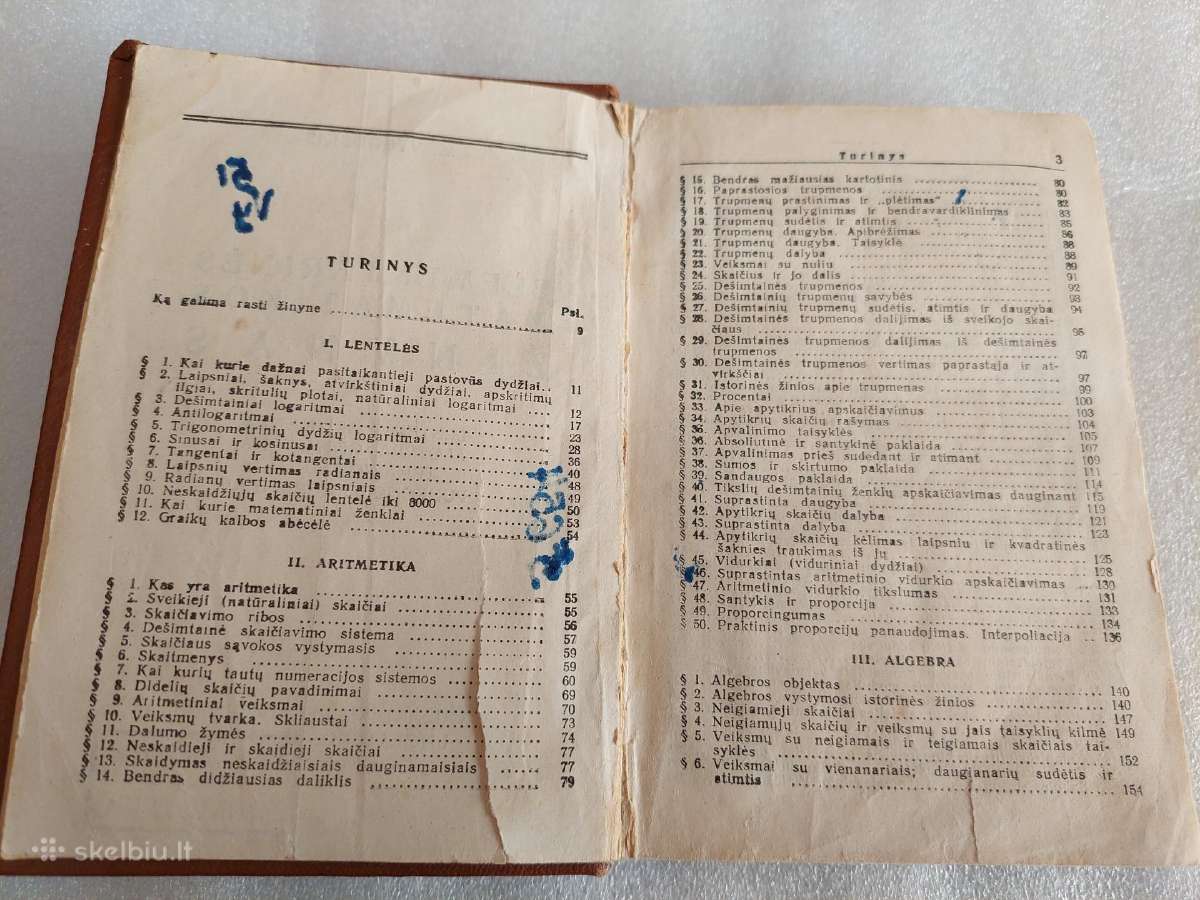 TURINYS
Psl.
Ką galima rasti žinyne 9
I. LENTELĖS
§ 1. Kai kurie dažnai pasitaikantieji pastovūs dydžiai 11
§ 2. Laipsniai, šaknys, atvirkštiniai dydžiai, apskritimų
ilgiai, skritulių plotai, natūraliniai logaritmai 12
§ 3. Dešimtainiai logaritmai 17
§ 4. Antilogaritmai 23
§ 5. Trigonometrinių dydžių logaritmai 28
§ 6. Sinusai ir kosinusai 36
§ 7. Tangentai ir kotangentai 40
§ 8. Laipsnių vertimas radianais 48
§ 9. Radianų vertimas laipsniais 49
§ 10. Neskaidžiųjų skaičių lentelė iki 8000 50
§ 11. Kai kurie matematiniai ženklai 53
§ 12. Graikų kalbos abėcėlė 54
II. ARITMETIKA
§ 1. Kas yra aritmetika 55
§ 2. Sveikieji (natūraliniai) skaičiai 55
§ 3. Skaičiavimo ribos 56
§ 4. Dešimtainė skaičiavimo sistema 57
§ 5. Skaičiaus sąvokos vystymasis 59
§ 6. Skaitmenys 59
§ 7. Kai kurių tautų numeracijos sistemos 60
§ 8. Didelių skaičių pavadinimai 69
§ 9. Aritmetiniai veiksmai 70
§ 10. Veiksmų tvarka. Skliaustai 73
§ 11. Dalumo žymės 74
§ 12. Neskaidieji ir skaidieji skaičiai 77
§ 13. Skaidymas neskaidžiaisiais dauginamaisiais 77
§ 14. Bendras didžiausias daliklis 79
skelbiu.lt
Turinys 3
§ 15. Bendras mažiausias kartotinis 80
§ 16. Paprastosios trupmenos 80
§ 17. Trupmenų prastinimas ir „plėtimas“ 82
§ 18. Trupmenų palyginimas ir bendravardiklinimas 83
§ 19. Trupmenų sudėtis ir atimtis 85
§ 20. Trupmenų daugyba. Apibrėžimas 86
§ 21. Trupmenų daugyba. Taisyklė 88
§ 22. Trupmenų dalyba 88
§ 23. Veiksmai su nuliu 89
§ 24. Skaičius ir jo dalis 91
§ 25. Dešimtainės trupmenos 92
§ 26. Dešimtainių trupmenų savybės 93
§ 27. Dešimtainių trupmenų sudėtis, atimtis ir daugyba 94
§ 28. Dešimtainės trupmenos dalijimas iš sveikojo skai-
čiaus
§ 29. Dešimtainės trupmenos dalijimas iš dešimtainės
trupmenos 97
§ 30. Dešimtainės trupmenos vertimas paprastąja ir at-
virkščiai 97
§ 31. Istorinės žinios apie trupmenas 99
§ 32. Procentai 100
§ 33. Apie apytikrius apskaičiavimus 103
§ 34. Apytikrių skaičių rašymas 104
§ Apvalinimo taisyklės 105
§ 36. Absoliutinė ir santykinė paklaida 107
§ 37. Apvalinimas prieš sudedant ir atimant 109
§ 38. Sumos ir skirtumo paklaida 111
§ 39. Sandaugos paklaida 114
§ 40. Tikslių dešimtainių ženklų apskaičiavimas dauginant 115
§ 41. Suprastinta daugyba 119
§ 42. Apytikrių skaičių dalyba 121
§ 43. Suprastinta dalyba 123
§ 44. Apytikrių skaičių kėlimas laipsniu ir kvadratinės
šaknies traukimas iš jų 125
§ 45. Vidurkiai (viduriniai dydžiai) 128
46. Suprastintas aritmetinio vidurkio apskaičiavimas 130
§ 47. Aritmetinio vidurkio tikslumas 131
§ 48. Santykis ir proporcija 133
§ 49. Proporcingumas 134
§ 50. Praktinis proporcijų panaudojimas. Interpoliacija 136
III. ALGEBRA
§ 1. Algebros objektas 140
§ 2. Algebros vystymosi istorinės žinios 140
§ 3. Neigiamieji skaičiai 147
§ 4. Neigiamųjų skaičių ir veiksmų su jais taisyklių kilmė 149
§ 5. Veiksmų su neigiamais ir teigiamais skaičiais tai-
syklės 152
§ 6. Veiksmai su vienanariais; daugianarių sudėtis ir
atimtis 154